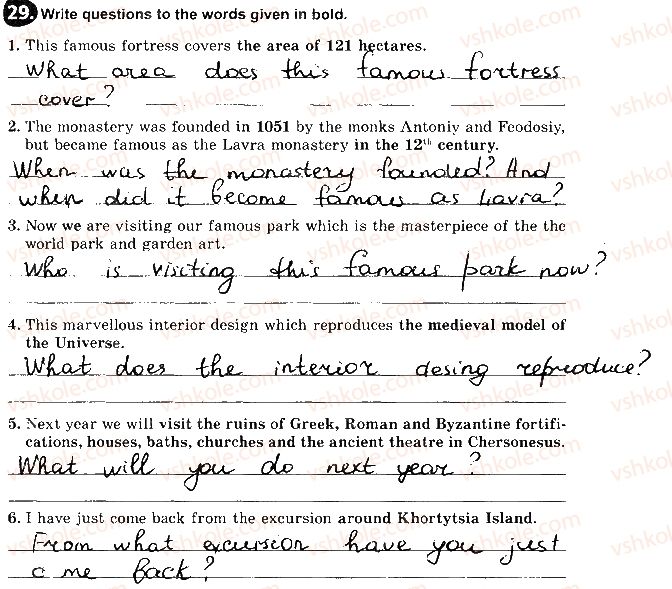 29. Write questions to the words given in bold.
1. This famous fortress covers the area of 121 hectares.
What area does this famous fortress
cover?
2. The monastery was founded in 1051 by the monks Antoniy and Feodosiy,
but became famous as the Lavra monastery in the 12th century.
When was the monastery founded? And
when did it become famous as Lavra?
3. Now we are visiting our famous park which is the masterpiece of the the
world park and garden art.
Who is visiting this famous park now?
4. This marvellous interior design which reproduces the medieval model of
the Universe.
What does the interior desing reproduce?
5. Next year we will visit the ruins of Greek, Roman and Byzantine fortifi-
cations, houses, baths, churches and the ancient theatre in Chersonesus.
What will you do next year?
6. I have just come back from the excursion around Khortytsia Island.
From what excursion have you just
come back?